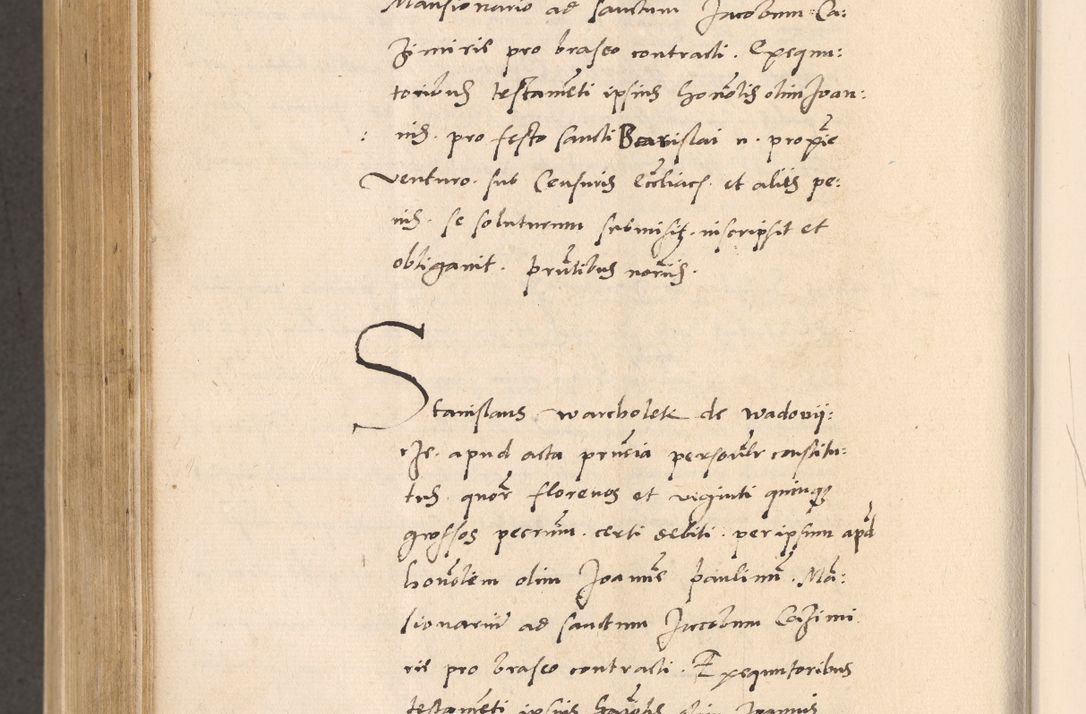 Mansionario ad sanctum Jacobum Ca:
zimirie pro braseo contracti. Exequu:
toribus testamēti ipsius honōlis olim Joan:
nis. pro festo sancti Stanislai n. proxīe
venturo. sub Censuris ecc̄liacs. et aliis pe:
nis. se soluturum submisit. inscripsit et
obligavit. pñtibus notariis.
Stanislaus warchołek de wadovij:
cze. apud acta pñcia personālr constitu:
tus. quor̄ florenos et viginti quinqȝ
grossos pecuniar̄. certi debiti. per ipsum apd
honōlem olim Joannē paulinū. Mā:
sionariū ad sanctum Jacobum Cazimi
rie pro braseo contracti. Exequutoribus
testamēti ipsius honōlis olim Joannis